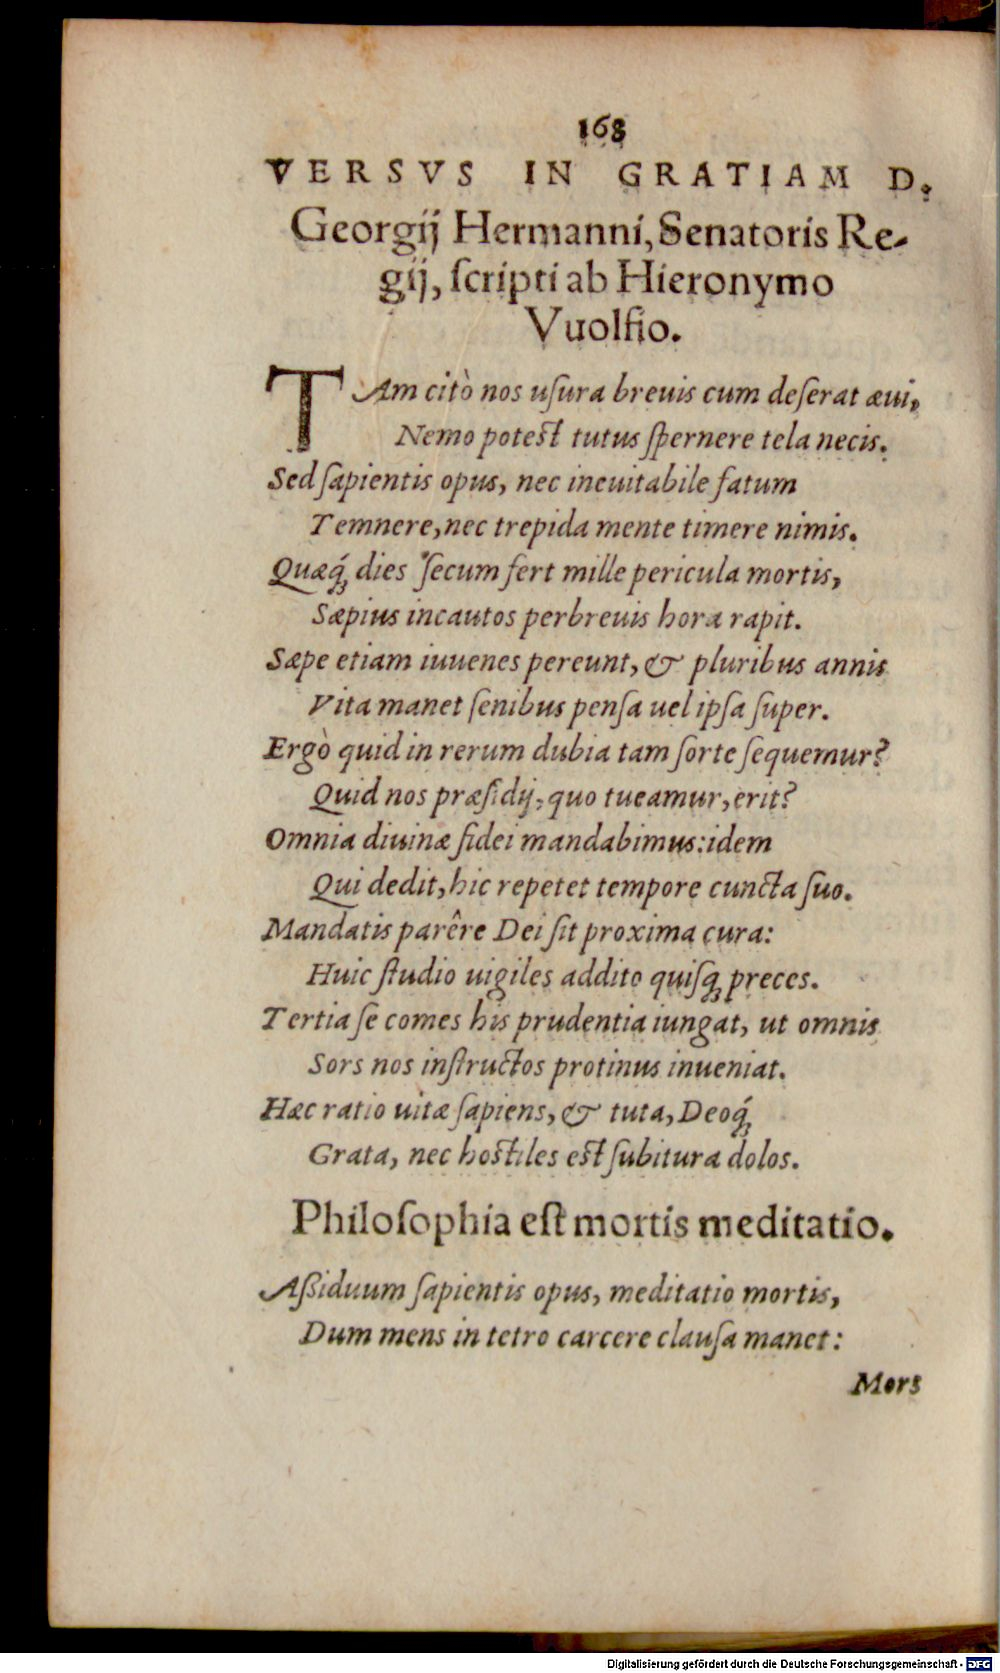 168
VERSVS IN GRATIAM D.
Georgij Hermanni, Senatoris Re-
gij, ſcripti ab Hieronymo
Vuolfio.
TAm citò nos uſura breuis cum deſerat æui,
Nemo poteſt tutus ſpernere tela necis.
Sed ſapientis opus, nec ineuitabile fatum
Temnere, nec trepida mente timere nimis.
Quæq́; dies ſecum fert mille pericula mortis,
Sæpius incautos perbreuis hora rapit.
Sæpe etiam iuuenes pereunt, & pluribus annis
Vita manet ſenibus penſa uel ipſa ſuper.
Ergò quid in rerum dubia tam ſorte ſequemur?
Quid nos præſidij, quo tueamur, erit?
Omnia diuinæ fidei mandabimus: idem
Qui dedit, hic repetet tempore cuncta ſuo.
Mandatis parêre Dei ſit proxima cura:
Huic ſtudio uigiles addito quiſq; preces.
Tertia ſe comes his prudentia iungat, ut omnis
Sors nos inſtructos protinus inueniat.
Hæc ratio uitæ ſapiens, & tuta, Deoq́;
Grata, nec hoſtiles eſt ſubitura dolos.
Philoſophia eſt mortis meditatio.
Aßiduum ſapientis opus, meditatio mortis,
Dum mens in tetro carcere clauſa manet:
Mors
Digitalisierung gefördert durch die Deutsche Forschungsgemeinschaft - DFG